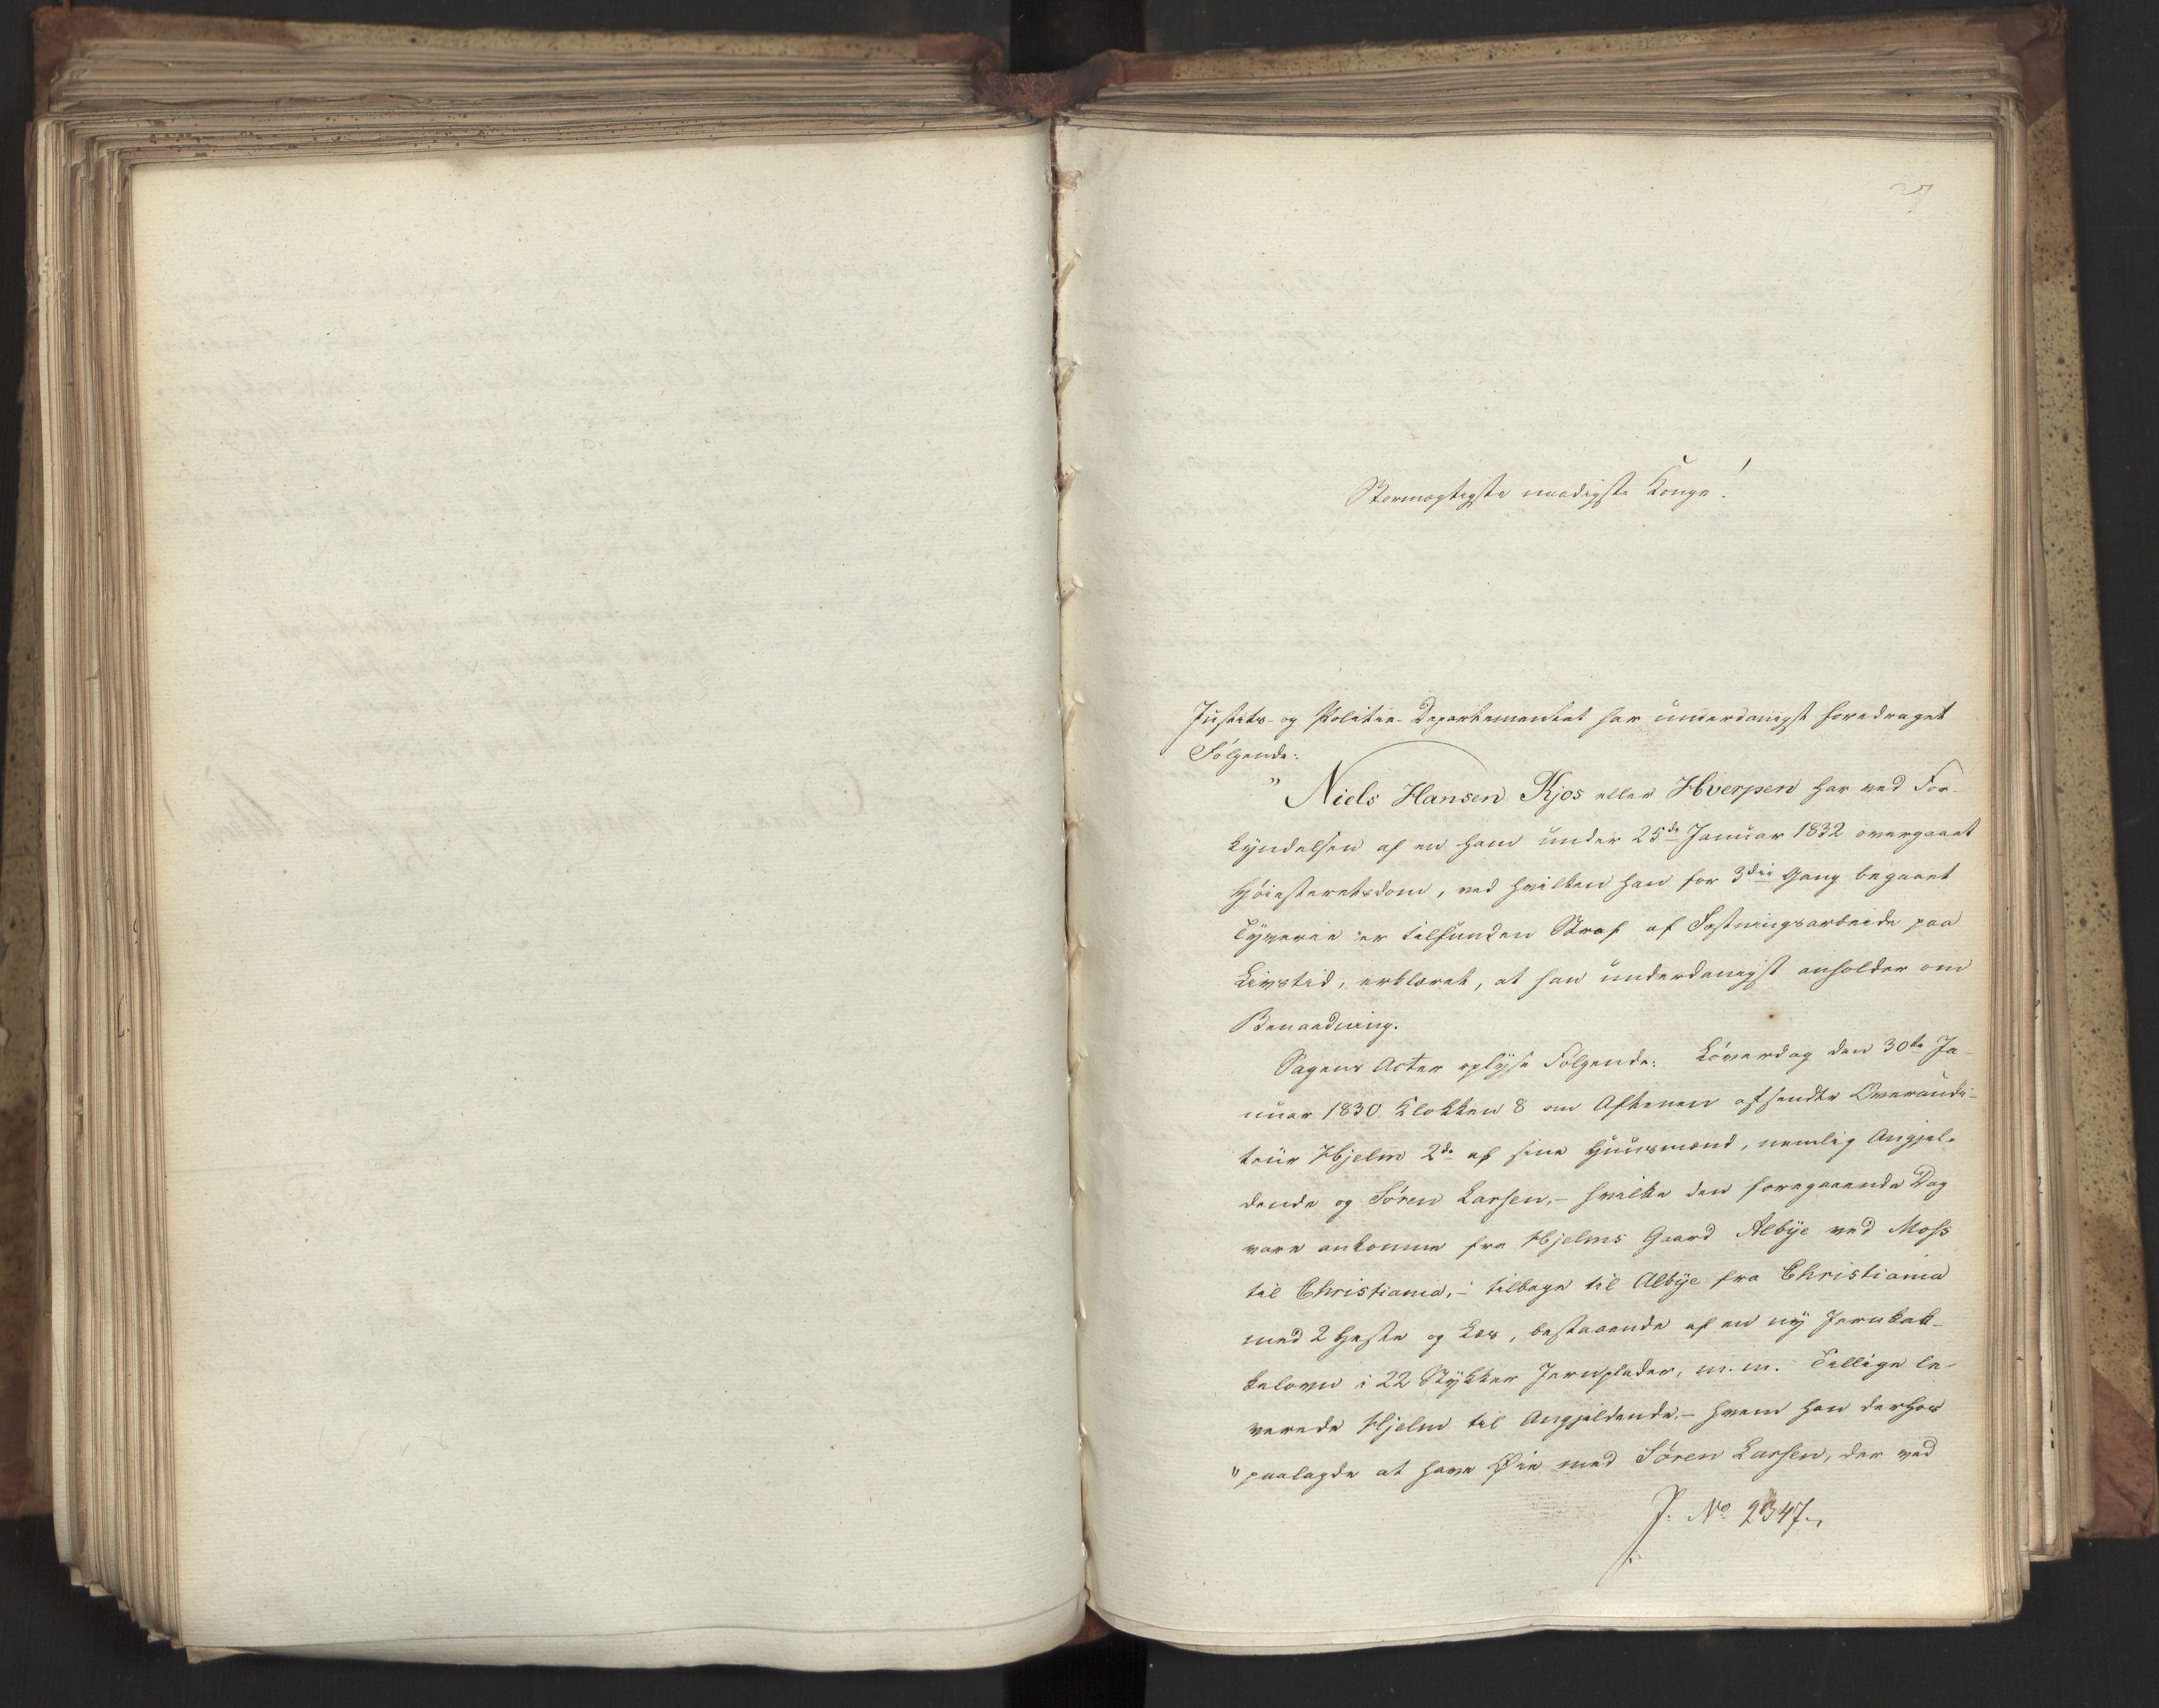 Stormægtigste naadigste Konge!
Justits- og Politie-Departementet har underdanigst foredraget
Følgende:
"Niels Hansen Kjos eller Hverpen har ved For-
kyndelsen af en ham under 25de Januar 1832 overgaaet
Høiesteretsdom, ved hvilken han for 3die Gang begaaet
Tyverie er tilfunden Straf af Fæstningsarbeide paa
Livstid, erklæret, at han underdanigst anholder om
Benaadning.
Sagens Acter oplyse Følgende: Løverdag den 30te Ja-
nuar 1830 Klokken 8 om Aftenen afsendte Overaudi-
teur Hjelm 2de af sine Huusmænd, nemlig Angjel-
dende og Søren Larsen,- hvilke den foregaaende Dag
vare ankomne fra Hjelms Gaard Albye ved Moss
til Christiania,- tilbage til Albye fra Christiania
med 2 Heste og Læs, bestaaende af en ny Jernkak-
kelovn i 22 Stykker Jernplader, m.m. Tillige le-
verede Hjelm til Angjeldende,- hvem han derhos
"paalagde at have Øie med Søren Larsen, der ved
J. No 2347.